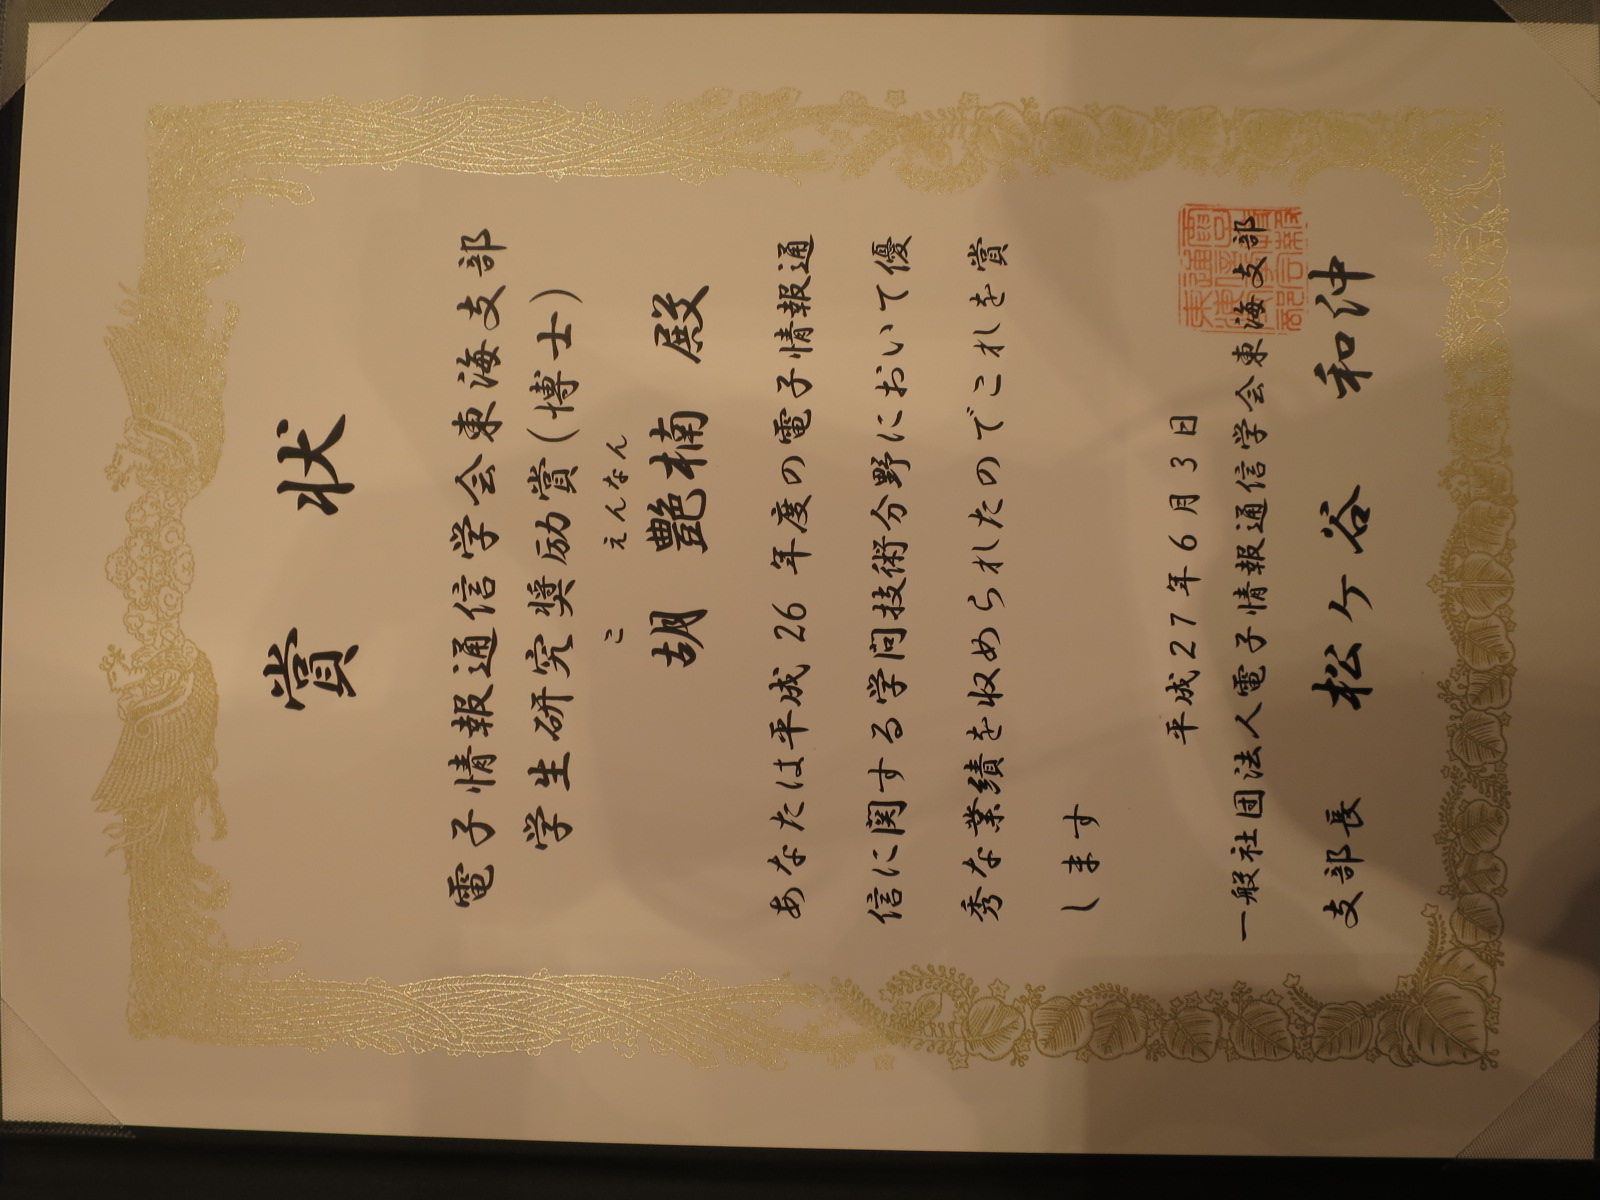 賞状
電子情報通信学会東海支部
学生研究奨励賞(博士)
こ えんなん
胡 艶楠 殿
あなたは平成26年度の電子情報通
信に関する学問技術分野において優
秀な業績を収められたのでこれを賞
します
平成27年6月3日
一般社団法人電子情報通信学会東海支部
支部長 松ケ谷 和沖